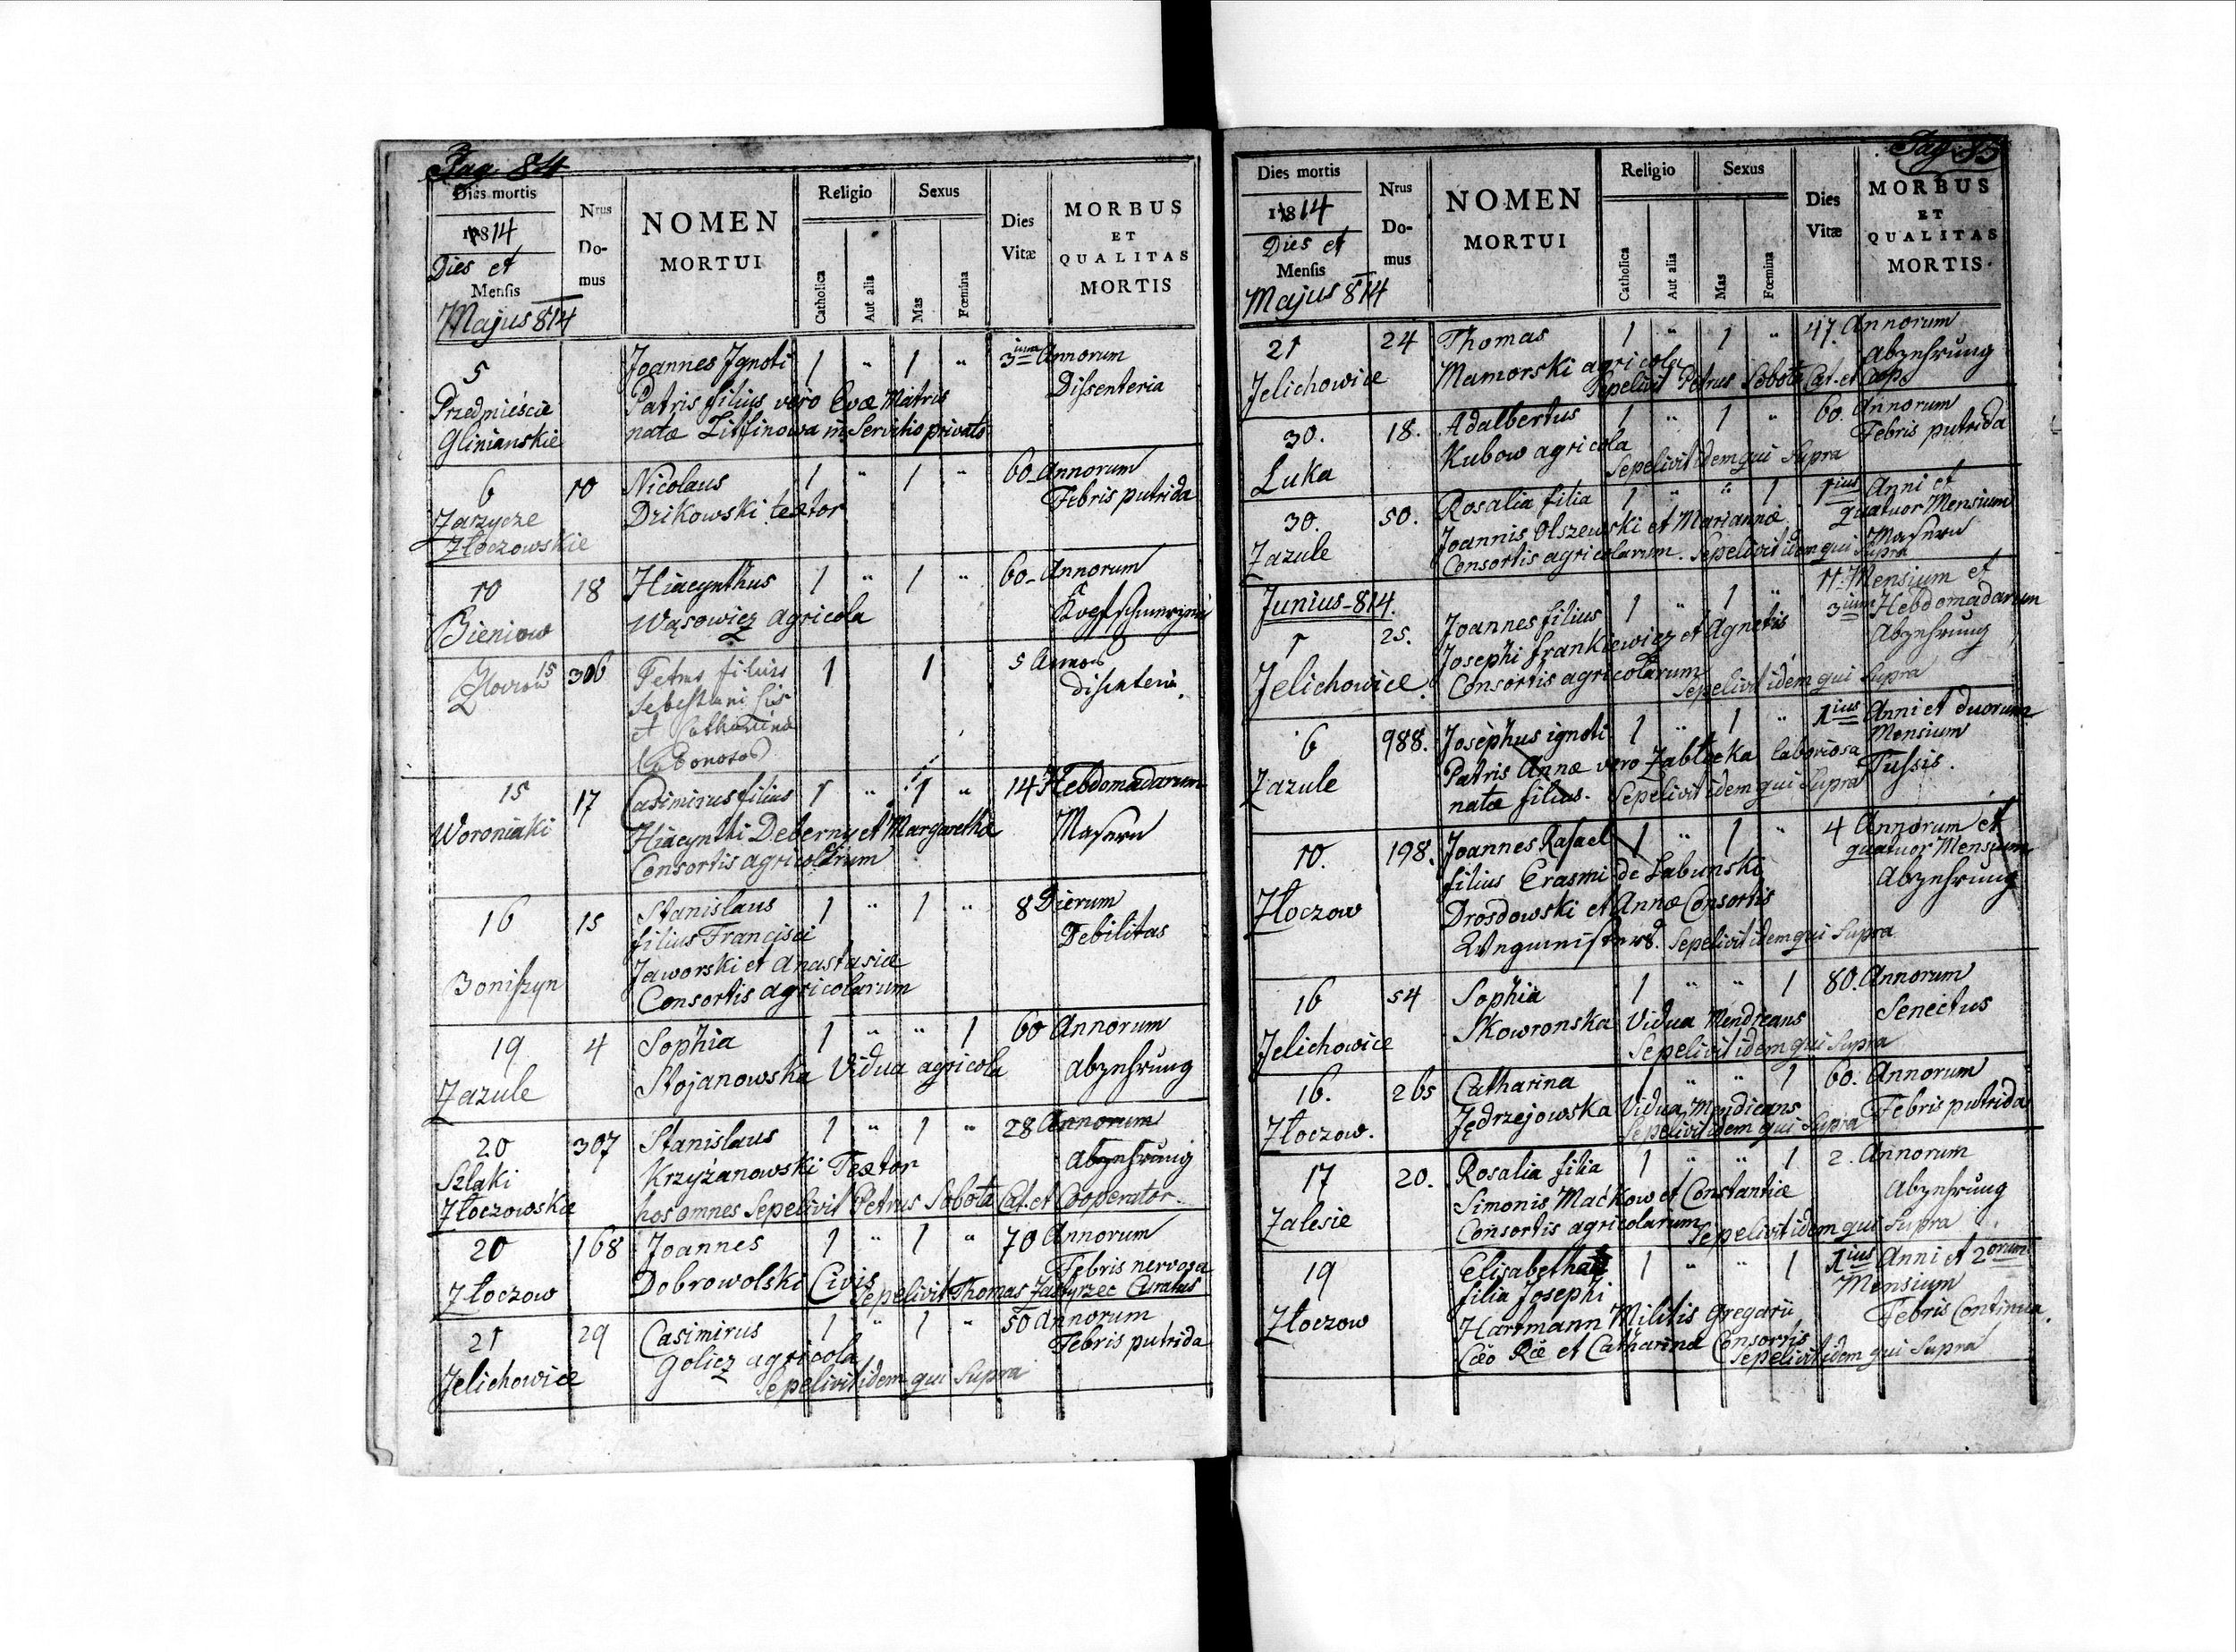 Pag. 84
Dies mortis
1814
Dies et
Mensis
Majus 814
Nrus
Do-
mus
NOMEN
MORTUI
Religio
Catholica
Aut alia
Sexus
Mas
Fœmina
Dies
Vitæ
MORBUS
ET
QUALITAS
MORTIS
5 Joannes Ignoti 1 " 1 " 3ium Annorum
Przedmieście Patris filius vero Evæ Matris Dissenteria
Glinianskie natæ in Servitio privato
6 10 Nicolaus 1 " 1 " 60 Annorum
Zarzycze Dzikowski textor Febris putrida
Złoczowskie
10 18 Hiacynthus 1 " 1 " 60 Annorum
Bieniow Wąsowicz agricola
15 306 Petrus filius 1 1 5 Annor
Złoczow Sebestiani Disenteria
et Catharina
15 17 Casimirus filius 1 " 1 " 14 Hebdomadarum
Woroniaki Hiacynthi Deberny et Margaretha Masern
Consortis agricolarum
16 15 Stanislaus 1 " 1 " 8 Dierum
filius Francisci Debilitas
Boniszyn Jaworski et Anastasiæ
Consortis agricolarum
19 4 Sophia 1 " " 1 60 Annorum
Zazule Stojanowska Vidua agricola Abzehrung
20 307 Stanislaus 1 " 1 " 28 Annorum
Szlaki Krzyżanowski Textor Abzehrung
Złoczowskie hos omnes Sepelivit Petrus Sobota Cat. et Cooperator
20 168 Joannes 1 " 1 " 70 Annorum
Złoczow Dobrowolski Civis Febris nervosa
Sepelivit Thomas Curatus
21 29 Casimirus 1 " 1 " 50 Annorum
Jelichowice Golicz agricola Febris putrida
Sepelivit idem qui Supra
Pag. 85
Dies mortis
1814
Dies et
Mensis
Majus 814
Nrus
Do-
mus
NOMEN
MORTUI
Religio
Catholica
Aut alia
Sexus
Mas
Fœmina
Dies
Vitæ
MORBUS
ET
QUALITAS
MORTIS.
21 24 Thomas 1 " 1 " 47. Annorum
Jelichowice Mamorski agricola Abzehrung
Sepelivit Petrus Sobota Cat. et Coop.
30. 18. Adalbertus 1 " 1 " 60. Annorum
Luka Kubow agricola Febris putrida
Sepelivit idem qui Supra
30. 50. Rosalia filia 1 " " 1 1ius Anni et
quatuor Mensium
Zazule Joannis Olszewski et Mariannæ Masern
Consortis agricolarum. Sepelivit idem qui Supra
Junius 814.
1 25. Joannes filius 1 " 1 " 11. Mensium et
3ium Hebdomadarum
Jelichowice. Josephi Frankiewicz et Agnetis Abzehrung
Consortis agricolarum Sepelivit idem qui Supra
6 988. Josephus ignoti 1 " 1 " 1ius Anni et duorum
Mensium
Zazule Patris Annæ vero Zabłocka laboriosa Tussis.
natæ filius. Sepelivit idem qui Supra
10. 198. Joannes Rafael 1 " 1 " 4 Annorum et
quatuor Mensium
Złoczow filius Erasmi de Łabunski Abzehrung
Drosdowski et Annæ Consortis
Sepelivit idem qui Supra
16 54 Sophia 1 " " 1 80. Annorum
Jelichowice Skowronska Vidua Mendicans Senectus
Sepelivit idem qui Supra
16. 265 Catharina 1 " " 1 60. Annorum
Złoczow. Jędrzejowska Vidua Mendicans Febris putrida
Sepelivit idem qui Supra
17 20. Rosalia filia 1 " " 1 2. Annorum
Zalesie Simonis Maćkow et Constantiæ Abzehrung
Consortis agricolarum Sepelivit idem qui Supra
19 Elisabetha 1 " " 1 1ius Anni et 2orum
filia Josephi Mensium
Złoczow Hartmann Militis Gregarii Febris Continua.
et Catharinæ Consortis
Sepelivit idem qui Supra